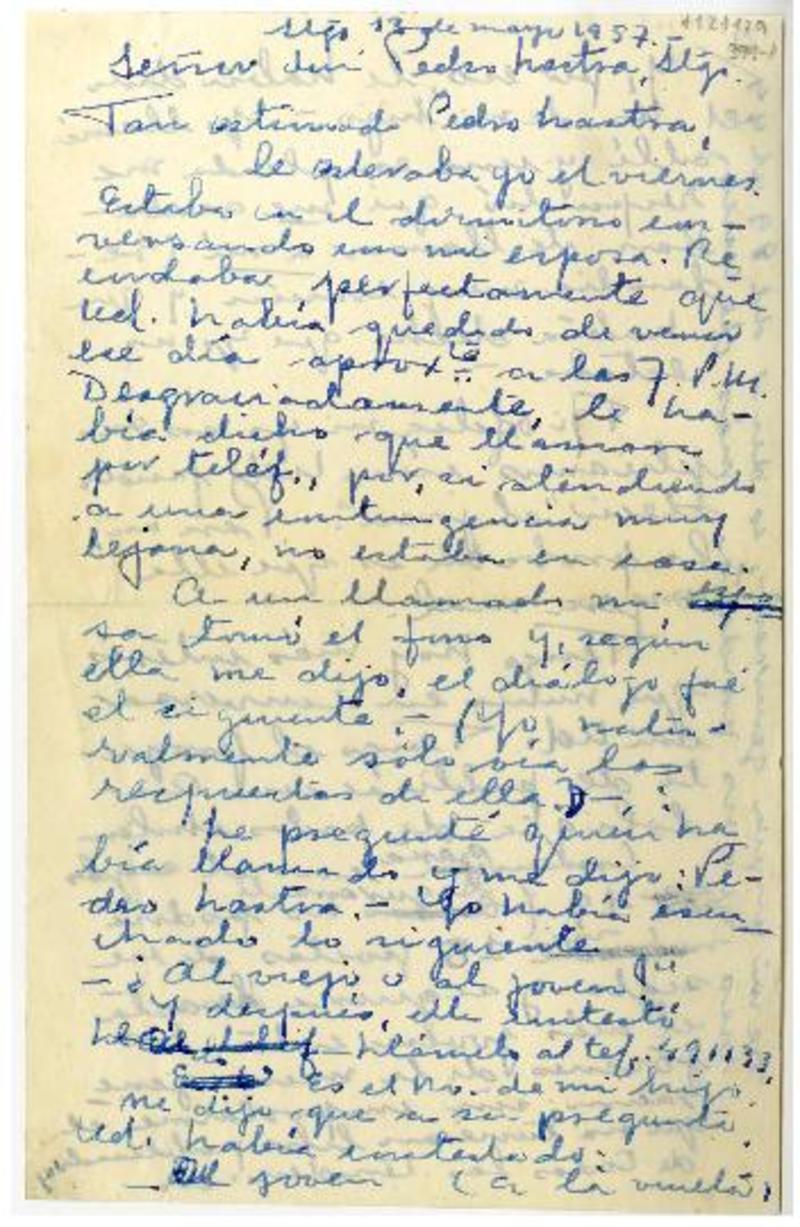 Stgo 13 de mayo 1957.-
1121129
394-1
Señor don Pedro Lastra, Stgo.
Tan estimado Pedro Lastra,
Le esperaba yo el viernes.
Estaba en el dormitorio con-
versando con mi esposa. Re
cordaba perfectamente que
Ud. había quedado de venir
ese día aprox.te a las 7. P.M.
Desgraciadamente, le ha-
bía dicho que llamara
por teléf., por, si atendiendo
a una contingencia muy
lejana, no estaba en casa.
A un llamado mi espo
sa tomó el fono y, según
ella me dijo, el diálogo fué
el siguiente.- (Yo natu-
ralmente sólo oía las
respuestas de ella)-,:
Le pregunté quién ha
bía llamado y me dijo: Pe-
dro Lastra.- Yo había escu
chado lo siguiente
- ¿Al viejo o al joven?"
Y después, ella contestó
Llámelo al tef. 491133.
Es el No. de mi hijo.
Me dijo que a su pregunta
Ud. había contestado:
- Al joven (a la vuelta)